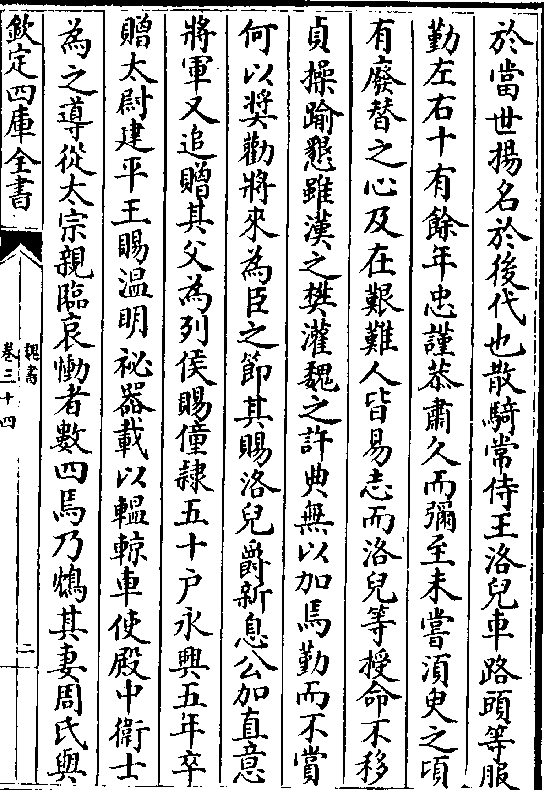 於當世揚名於後代也散騎常侍王洛兒車路頭等服
勤左右十有餘年忠謹恭肅久而彌至未嘗須臾之頃
有廢替之心及在艱難人皆易志而洛兒等授命不移
貞操踰懇雖漢之樊灌魏之許典無以加焉勤而不賞
何以奬勸將來為臣之節其賜洛兒爵新息公加直意
將軍又追贈其父為列侯賜僮隸五十户永興五年卒
贈太尉建平王賜溫明祕器載以轀輬車使殿中衛士
為之導從太宗親臨哀慟者數四焉乃鴆其妻周氏與
欽定四庫全書
魏書
卷三十四
二